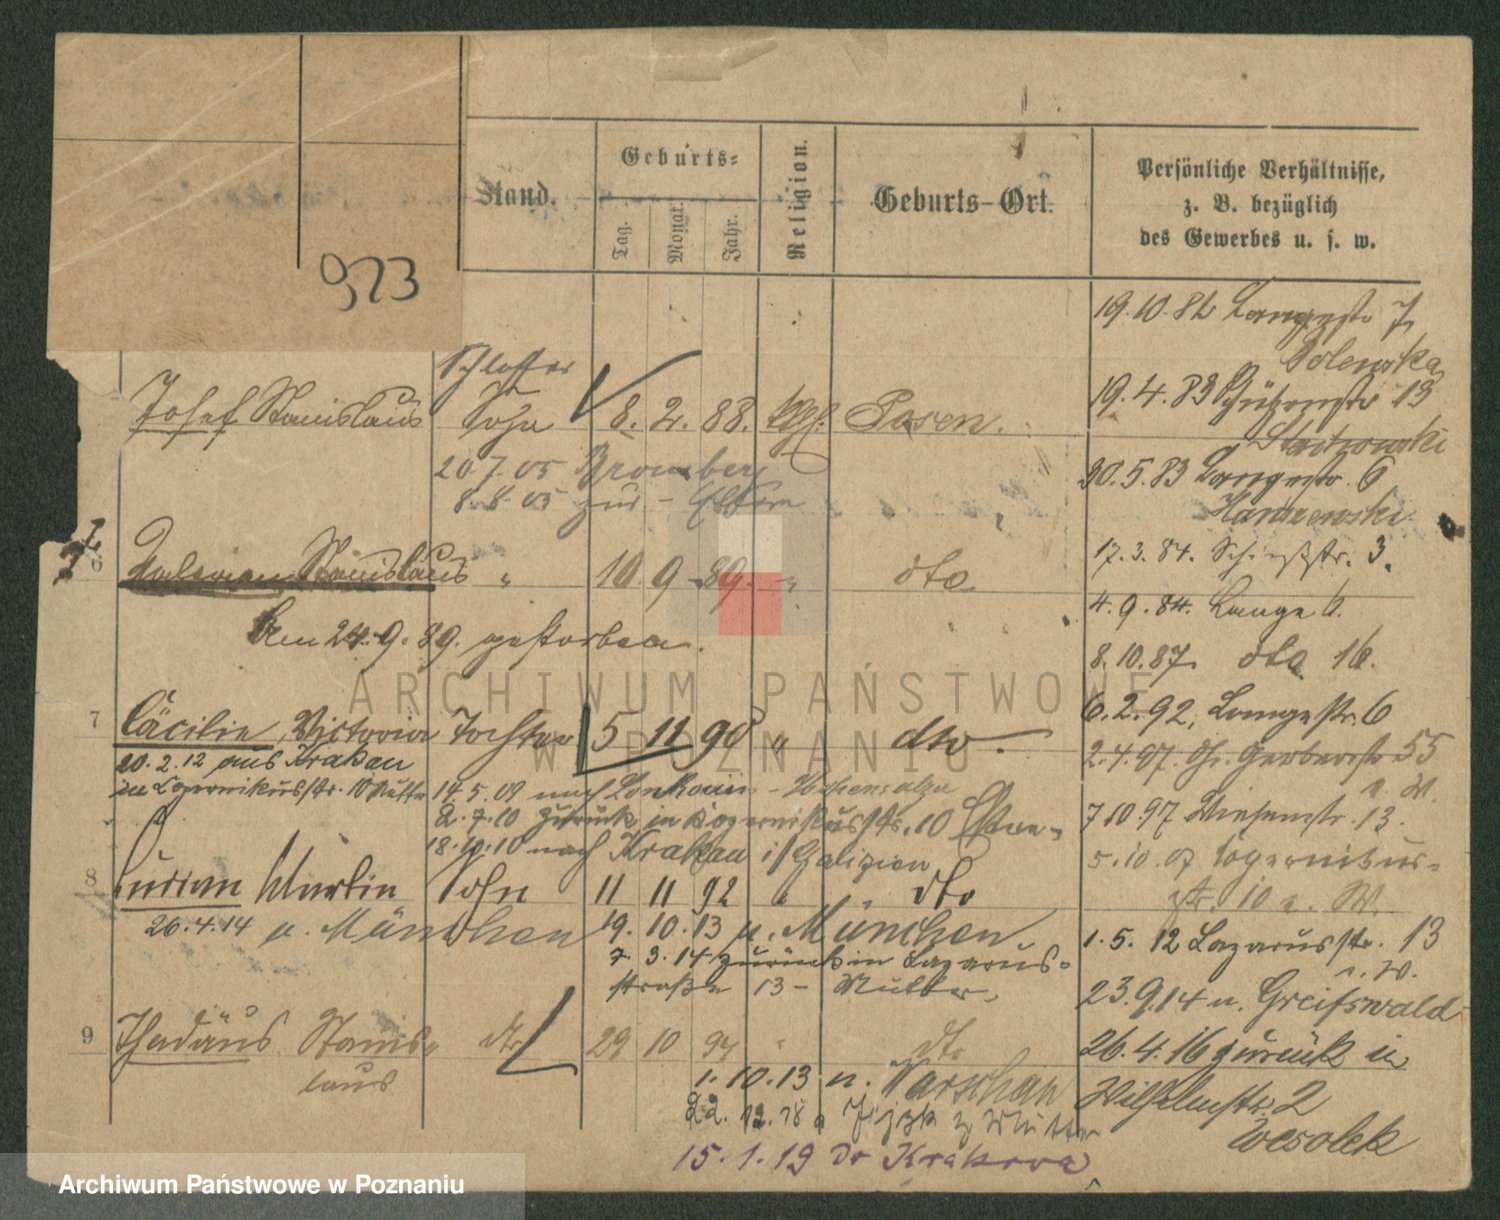 923
Stand.
Geburts=
Tag.
Monat.
Jahr.
Religion.
Geburts-Ort.
Persönliche Verhältnisse,
z. B. bezüglich
des Gewerbes u. s. w.
19.10.82 Langestr 7
19.4.83 Schützenstr 19
30.5.83 Langestr. 6
17.3.84. Schießstr. 3.
4.9.84. Lange 6.
8.10.87. dto 16.
6.2.92, Langestr. 6
2.4.97. Gr. Gerberstr 55
b. W.
7.10.97 Wiesenstr. 13.
5.10.07 Kopernikus-
str. 10 b. W.
1.5.12 Lazarusstr. 13
b. W.
23.9.14 n. Greifswald
26.4.16 zurück in
Wilhelmstr. 2
Wesolek
Schlosser
Josef Stanislaus Sohn 8. 2. 88. kth. Posen.
20.7.05 Bromberg
8.8.05 zur - Eltern
6 Valerian Stanislaus " 10 9 89. " dto.
Den 24.9.89. gestorben.
7 Cäcilie, Victoria Tochter 5 11 90 " dto.
20.2.12 aus Krakau
in Kopernikusstr. 10 Mutter
14.5.09 nach - Hohensalza
2.7.10 zurück in Kopernikusstr. 10 Eltern
18.10.10 nach Krakau i/Galizien
8 Lucian Martin Sohn 11 11 92 " dto
26.4.14 n. München
19.10.13 n. München
7.3.14 zurück in Lazarus-
straße 13 - Mutter.
9 Thadäus Stanis- dto 29 10 94 " dto
laus
1.10.13 n. Warschau
22.12.18 z Mutter
15.1.19 Do Krakowa
ARCHIWUM PAŃSTWOWE
W POZNANIU
Archiwum Państwowe w Poznaniu